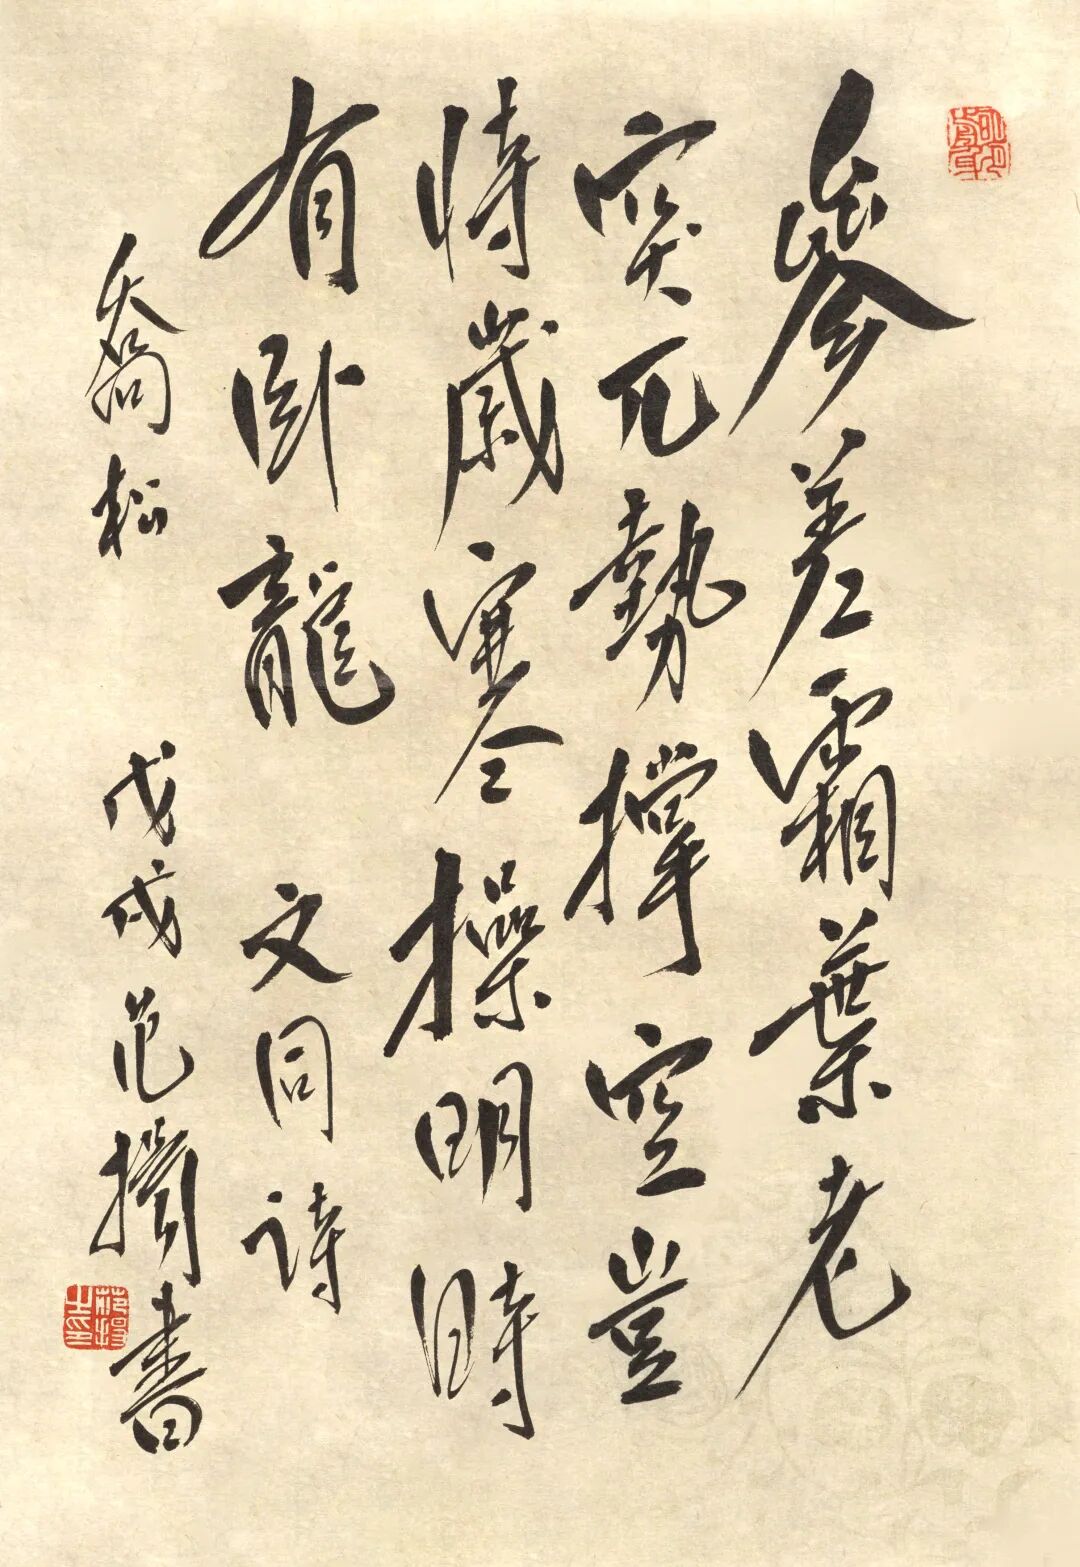 參差霜葉老
突兀勢撐空豈
恃歲寒操明時
有卧龍 文同詩
喬松 戊戌范書